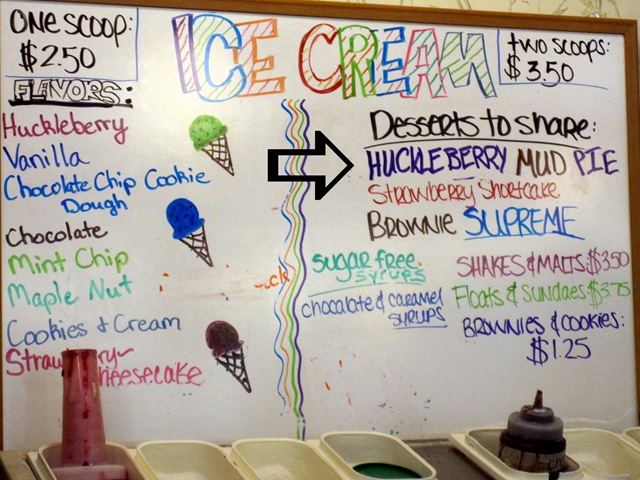 ONE SCOOP:
$2.50
ICE CREAM
two scoops:
$3.50
FLAVORS:
Huckleberry
Vanilla
Chocolate Chip Cookie
Dough
Chocolate
Mint Chip
Maple Nut
Cookies & Cream
Desserts to share:
HUCKLEBERRY MUD PIE
Strawberry Shortcake
BROWNIE SUPREME
sugar free
syrups
chocolate & caramel
syrups
SHAKES & MALTS: $3.50
Floats & Sundaes $3.75
BROWNIES & COOKIES:
$1.25